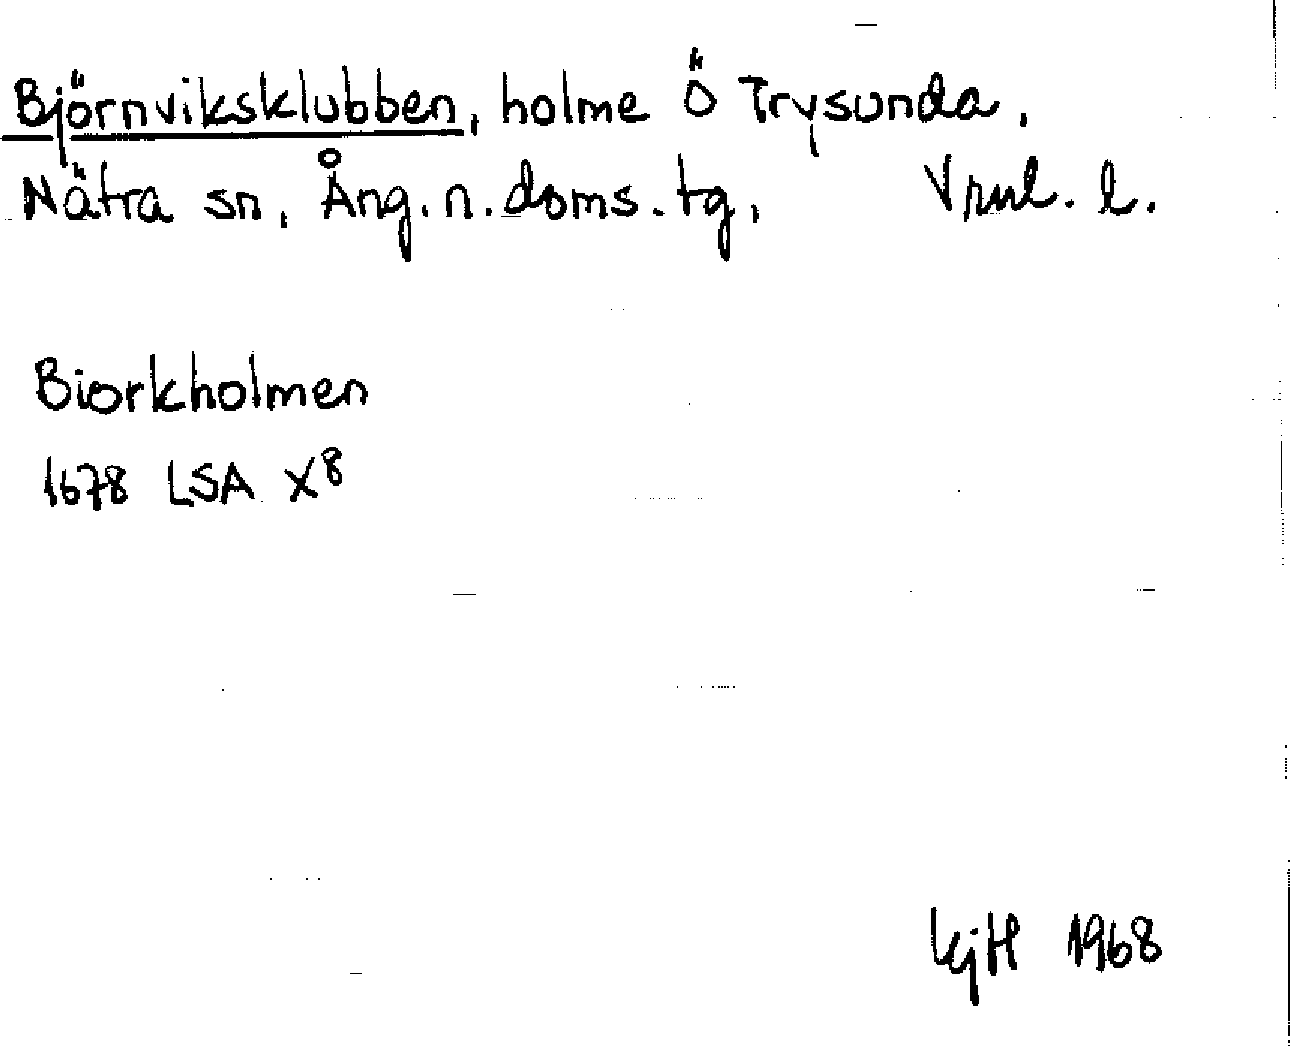 Björnviksklubben, holme Ö Trysunda,
Nätra sn, Ång. n. doms. tg, Vrnl. l.
Biorkholmen
1678 LSA X8
KjH 1968